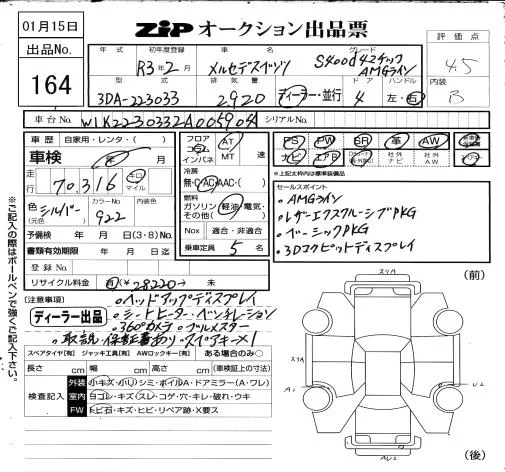 01月15日
ZIP オークション出品票
出品No.
164
年式 初年度登録 車名 グレード 評価点
R3年2月 メルセデスベンツ S400d4マチック AMGライン 4.5
型式 排気量 ドア ハンドル 内装
3DA-223033 2920 ディーラー・並行 4 左・右 B
車台No. W1K2230332A005904 シリアルNo.
車歴 自家用・レンタ・( ) フロア コラム インパネ AT MT 速
PS PW SR 革 AW
ナビ エアB 社外ナビ 社外AW
※上記太枠内は標準装備品
車検 年 月
走行 70,316 キロ マイル
冷房 無・C・AC・AAC・( )
燃料 ガソリン・軽油・電気・その他( )
色 シルバー (元色) カラーNo. 922
予備検 年 月 日(3・8)No.
Nox 適合・非適合
書類有効期限 年 月 日迄
乗車定員 5 名
登録No.
リサイクル料金 有(¥28220-) 未
セールスポイント
・AMGライン
・レザーエクスクルーシブPKG
・ベーシックPKG
・3Dコクピットディスプレイ
(注意事項)
ディーラー出品
・ヘッドアップディスプレイ
・シートヒーター・ベンチレーション
・360°カメラ ・ブルメスター
・取説・保証書あり・スペアキー×1
スペアタイヤ[有] ジャッキ工具[有] AWロックキー[有] ある場合のみ○
長さ cm 幅 cm 高さ cm (車検証上の寸法)
検査記入
外装 小キズ・小凹・シミ・ホイルA・ドアミラー(A・ワレ)
室内 ヨゴレ・キズ・スレ・コゲ・穴・キレ・破れ・ウキ
FW トビ石・キズ・ヒビ・リペア跡・X要ス
※ご記入の際はボールペンで強くご記入下さい。
(前)
スリA
スリA
A1
U2
AU2
(後)